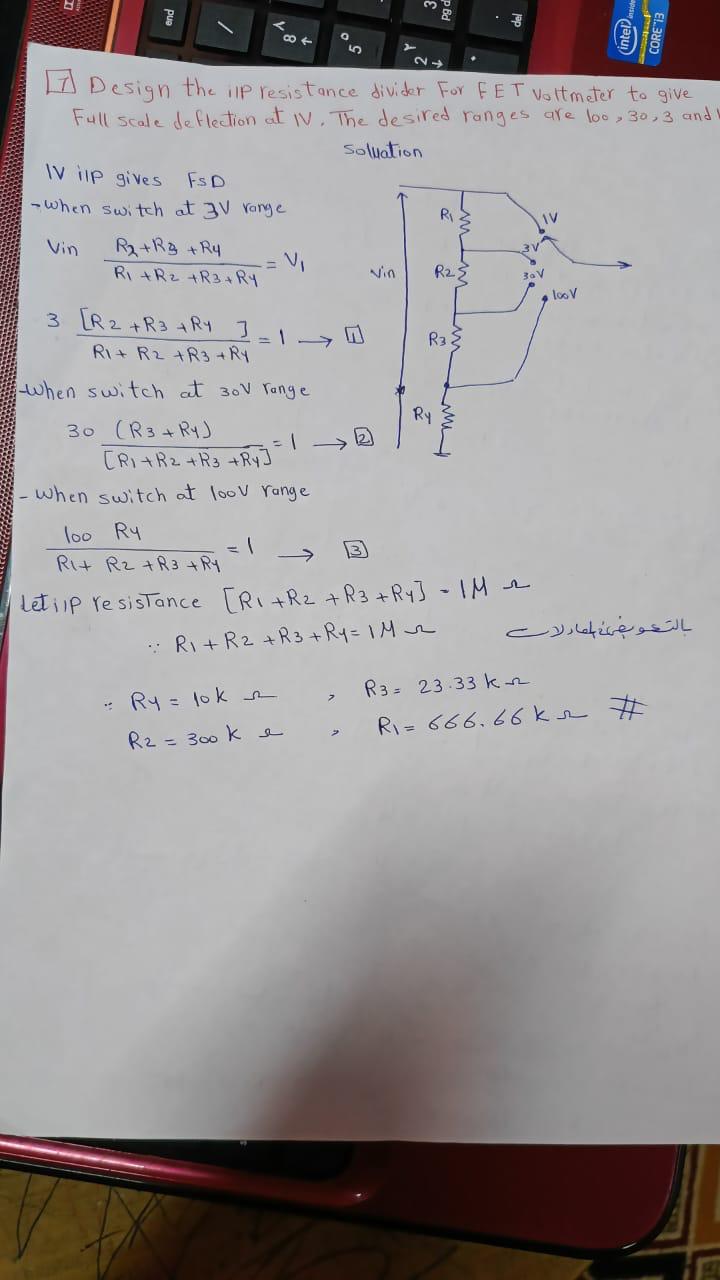 end
/
8
5
2
3
pg d
.
del
intel inside
CORE i3
1 Design the i/P resistance divider For FET Voltmeter to give
Full scale deflection at 1V. The desired ranges are 100, 30, 3 and
Soluation
1V i/P gives FSD
- when switch at 3V range
Vin (R2 + R3 + R4) / (R1 + R2 + R3 + R4) = V1
3 [R2 + R3 + R4] / (R1 + R2 + R3 + R4) = 1 → 1
- when switch at 30V range
30 (R3 + R4) / [R1 + R2 + R3 + R4] = 1 → 2
- when switch at 100V range
100 R4 / (R1 + R2 + R3 + R4) = 1 → 3
Vin
R1
R2
R3
R4
1V
3V
30V
100V
Let i/P resisTance [R1 + R2 + R3 + R4] = 1M Ω
∵ R1 + R2 + R3 + R4 = 1M Ω
بالتعويض في المعادلات
∴ R4 = 10k Ω , R3 = 23.33 k Ω
R2 = 300 k Ω , R1 = 666.66 k Ω #